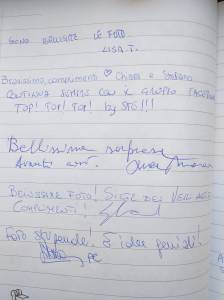 SONO BELLISSIME LE FOTO
LISA T.
Bravissimo, complimenti ♡ Chiara e Stefano
CONTINUA SEMPRE CON IL GRUPPO
TOP! TOP! TOP! by STÉ!!!
Bellissima sorpresa
Avanti così.
BELLISSIME FOTO! SIETE DEI VERI
COMPLIMENTI!
FOTO stupende! E idee geniali!